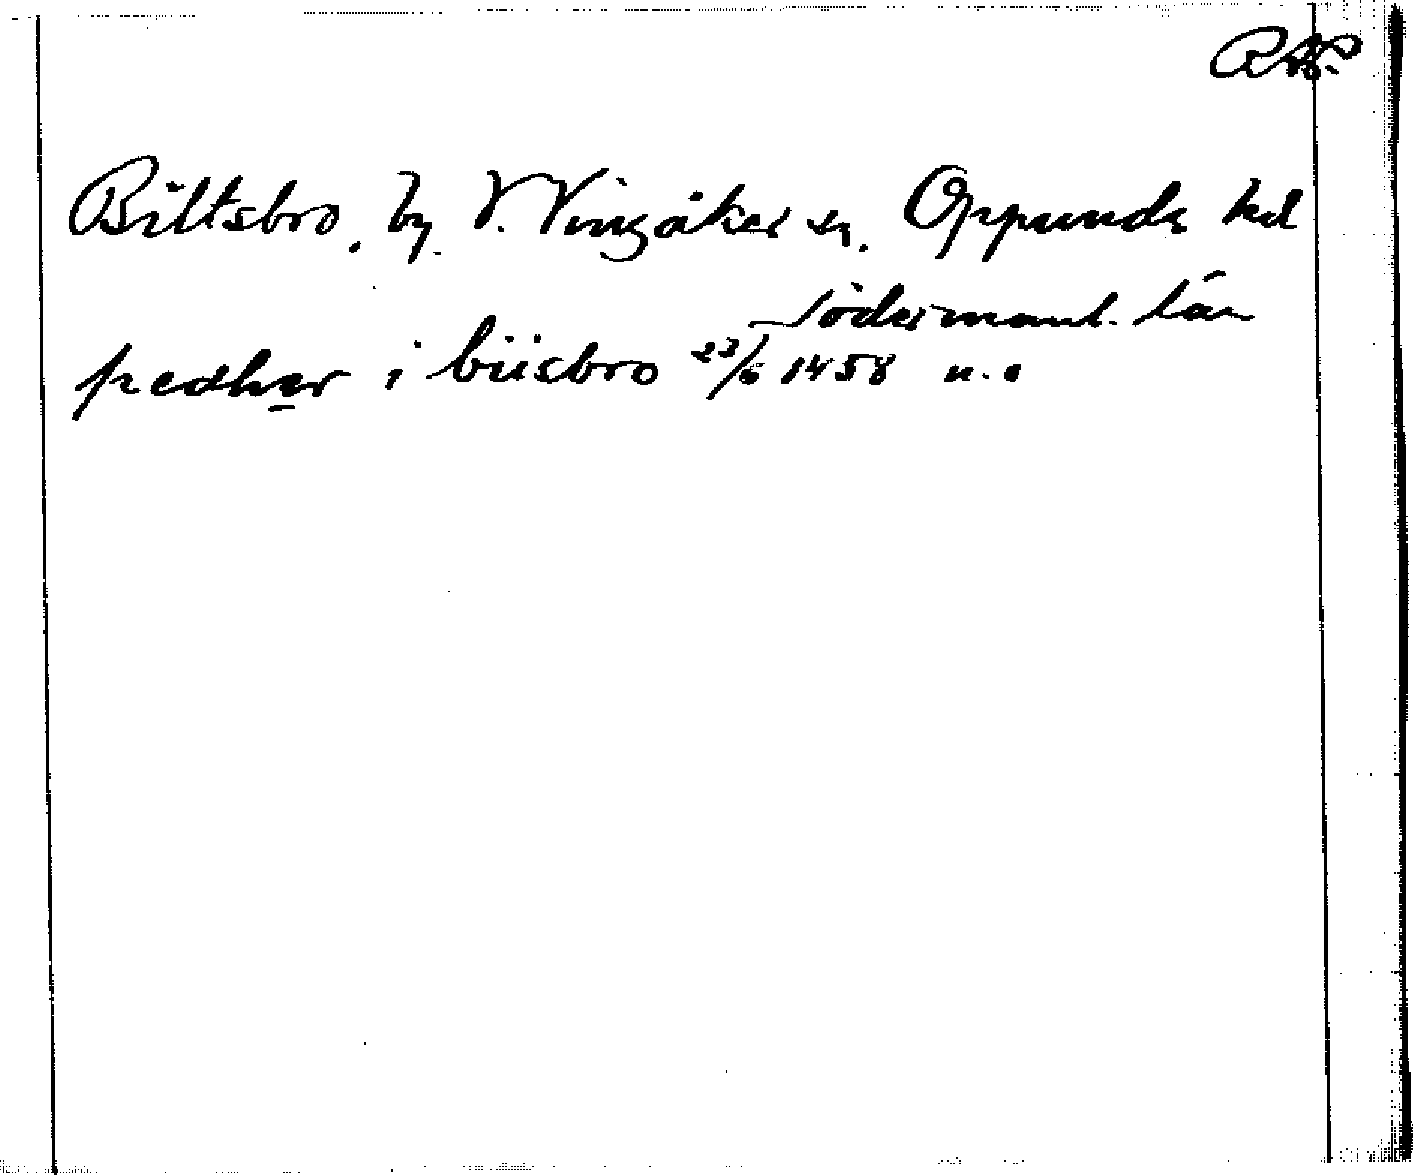 RAP.
Biltsbro, by V. Vingåker sn. Oppunda hd
Södermanl. län
pedher i biisbro 23/6 1458 n. o